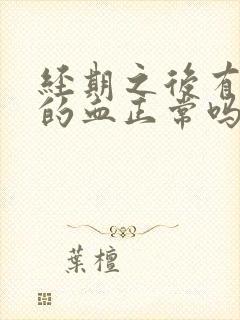 经期之后有
的血正常吗
葉檀